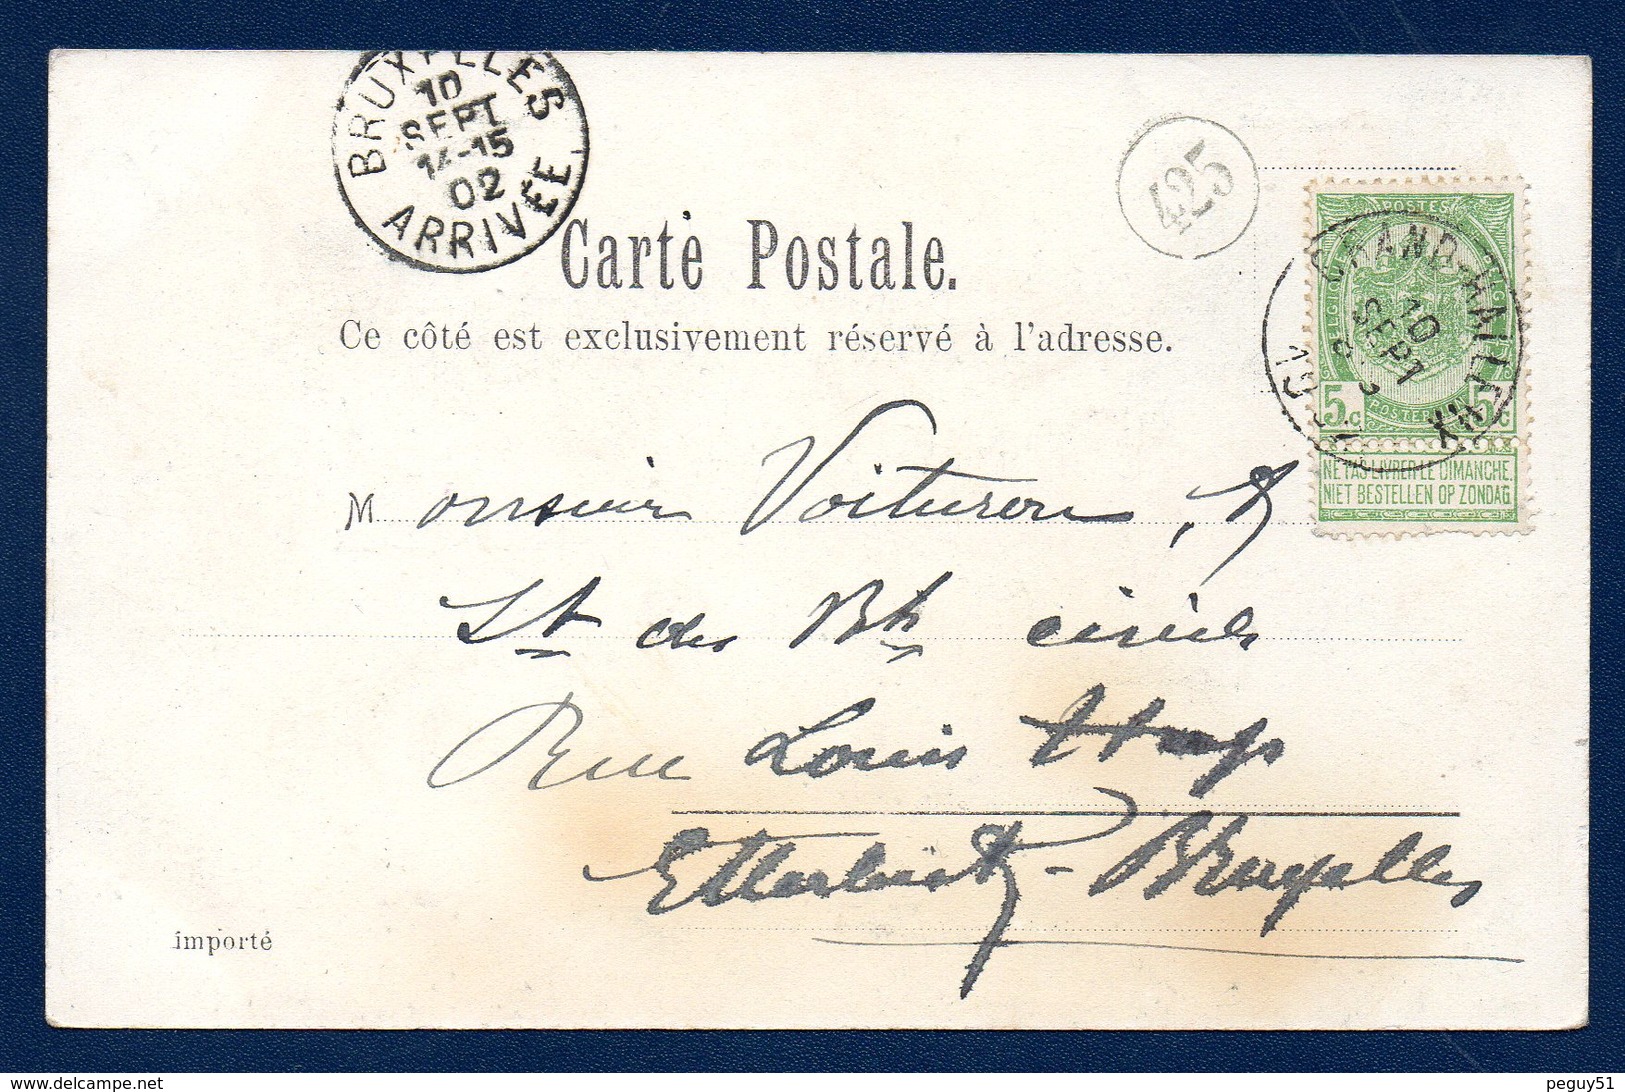 BRUXELLES
10
SEPT
14-15
02
ARRIVÉE
425
Carte Postale.
Ce côté est exclusivement réservé à l'adresse.
POSTES
GRAND-HALLEUX
10
SEPT
1902
5c 5c
POSTERIJEN
NE PAS LIVRER LE DIMANCHE.
NIET BESTELLEN OP ZONDAG
Monsieur Voituron,
Lt des Bts civils
Rue Louis Hap
Etterbeek - Bruxelles
importé
delcampe.net
peguy51